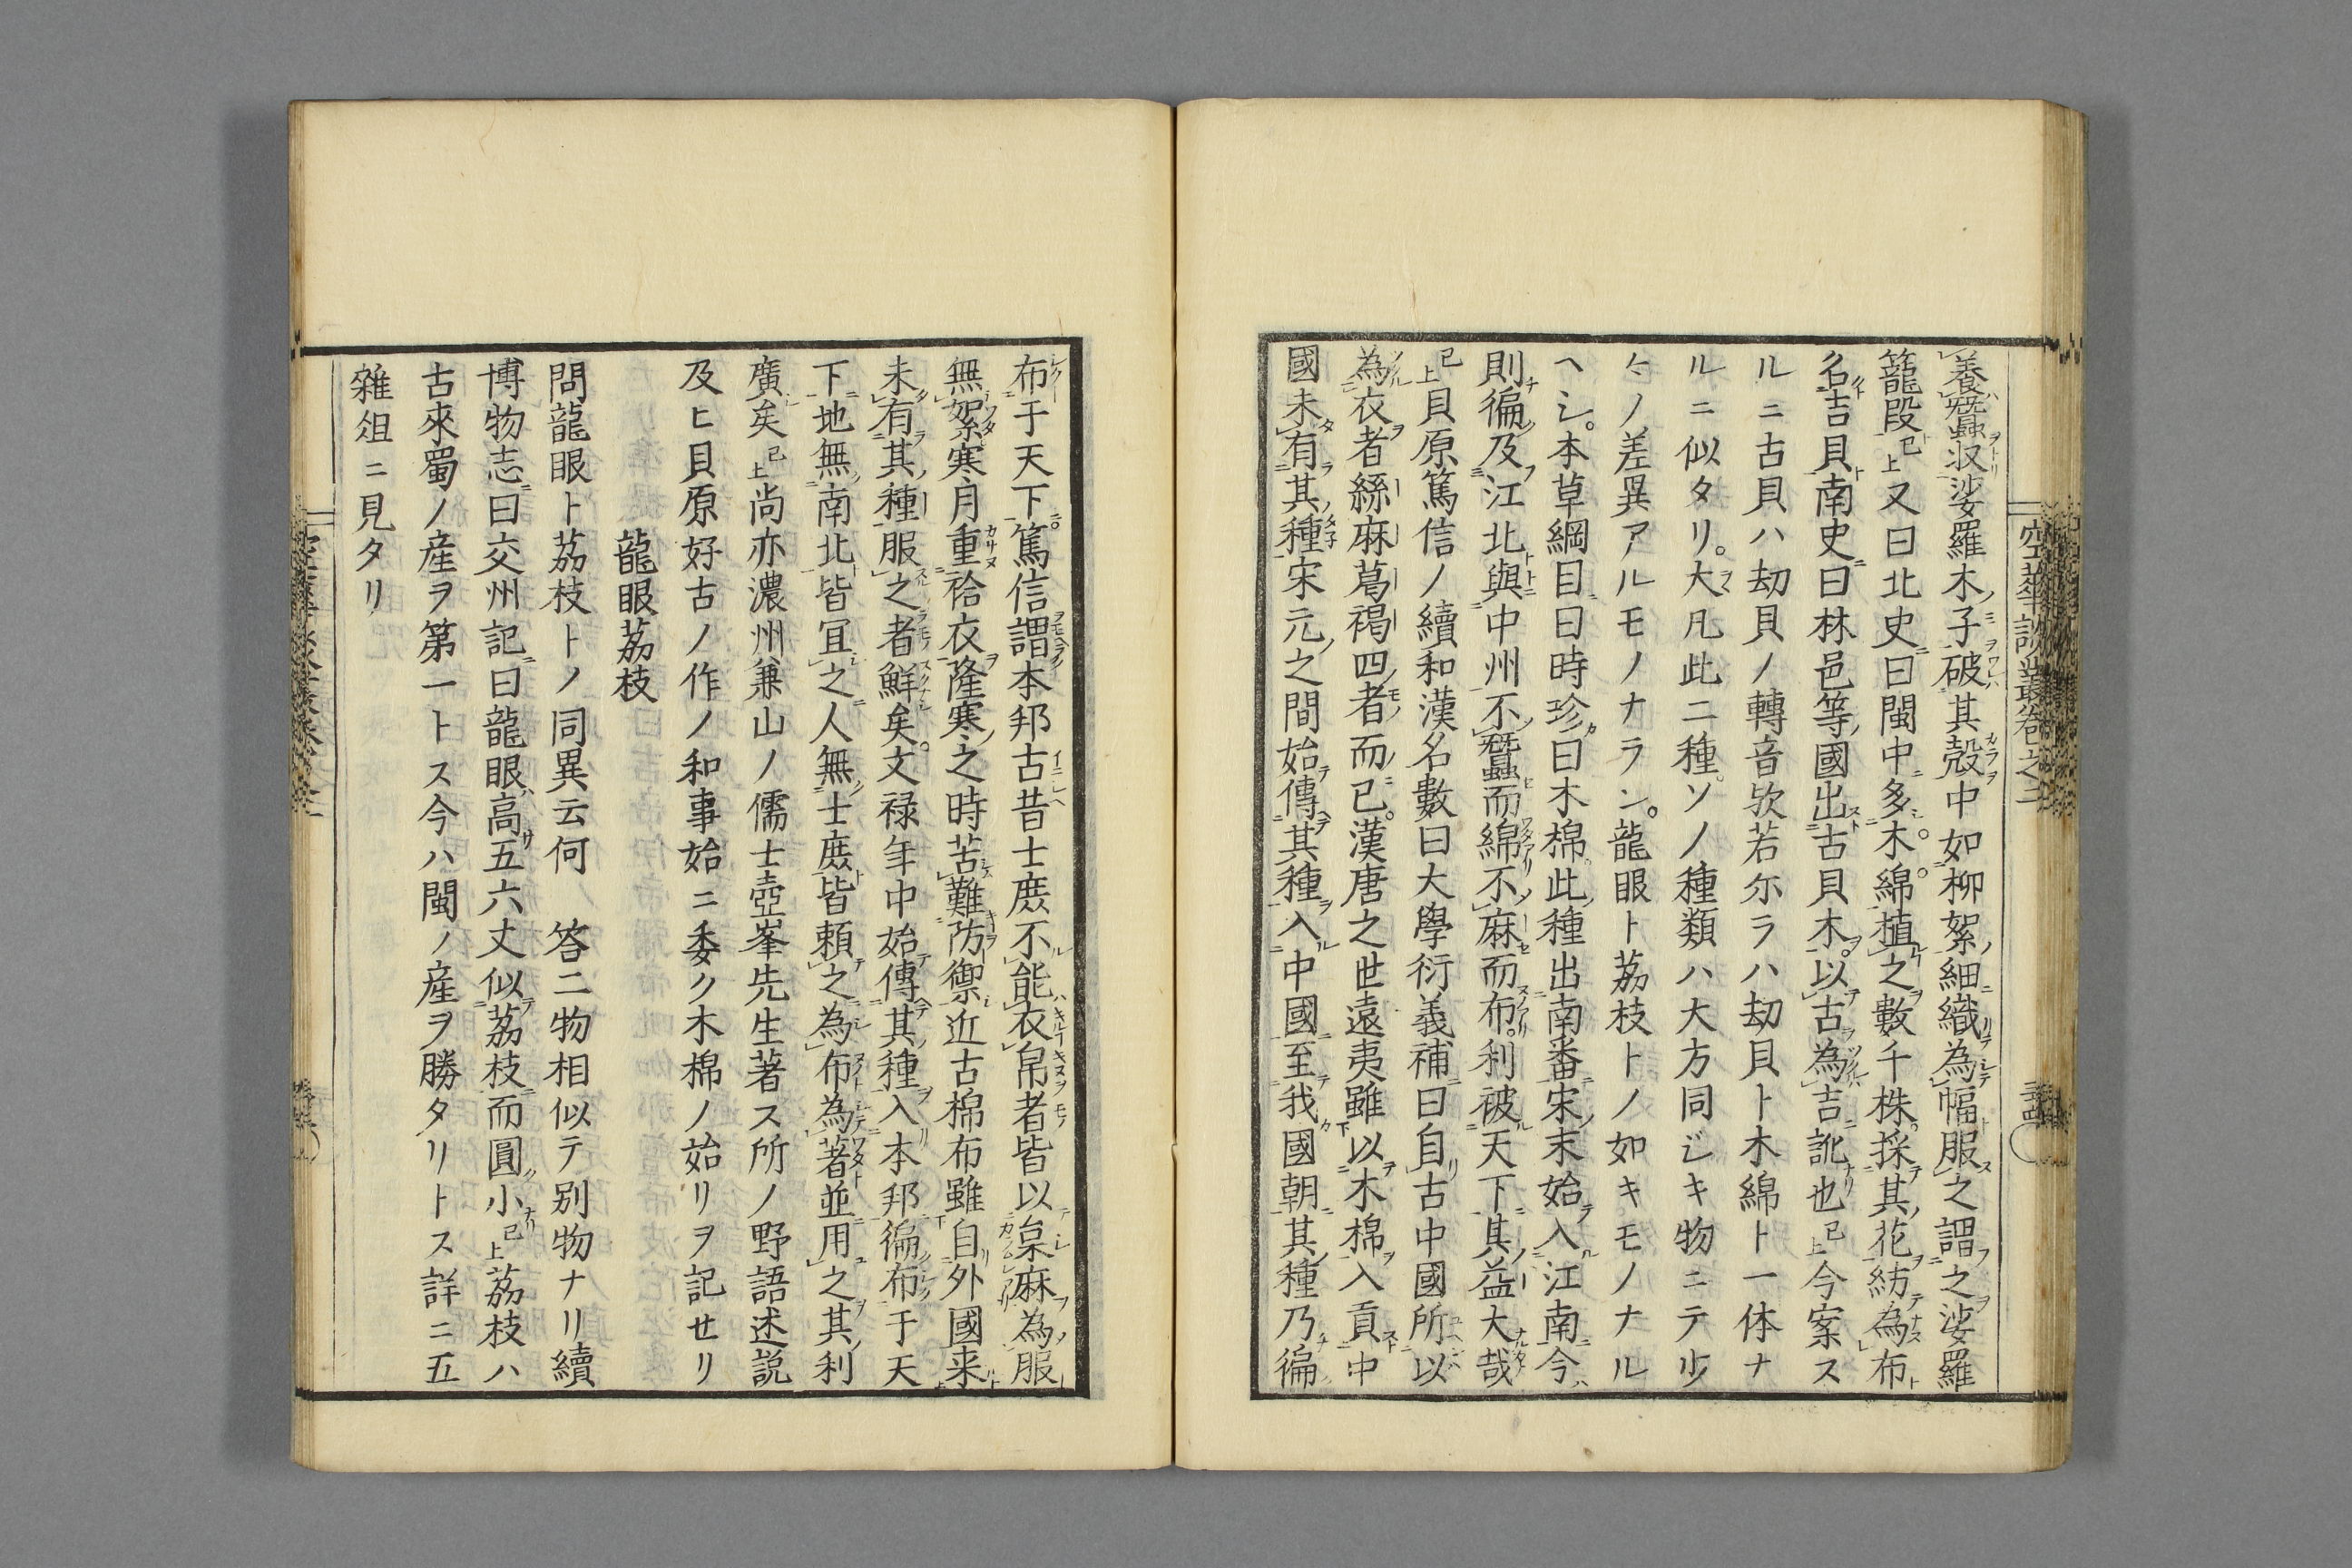 養蠶収娑羅木子破其殻中如柳絮細織為幅服之謂之娑羅
籠段已上又曰北史曰閩中多木綿植之數千株採其花紡為布
名吉貝南史曰林邑等國出古貝木以古為吉訛也已上今案ス
ルニ古貝ハ刧貝ノ轉音欤若尓ラハ刧貝ト木綿ト一体ナ
ルニ似タリ。大凡此二種ソノ種類ハ大方同ジキ物ニテ少
〻ノ差異アルモノナラン。龍眼ト荔枝トノ如キモノナル
ヘシ。本草綱目曰時珍曰木棉此種出南番宋末始入江南今
則徧及江北與中州不蠶而綿不麻而布利被天下其益大哉
已上貝原篤信ノ續和漢名數曰大學衍義補曰自古中國所以
為衣者絲麻葛褐四者而已漢唐之世遠夷雖以木棉入貢中
國未有其種宋元之間始傳其種入中國至我國朝其種乃徧
布于天下篤信謂本邦古昔士庶不能衣帛者皆以枲麻為服
無絮寒月重袷衣隆寒之時苦難防禦近古棉布雖自外國来
未有其種服之者鮮矣文禄年中始傳其種入本邦徧布于天
下地無南北皆冝之人無士庶皆頼之為布為著並用之其利
廣矣已上尚亦濃州兼山ノ儒士壺峯先生著ス所ノ野語述説
及ヒ貝原好古ノ作ノ和事始ニ委ク木棉ノ始リヲ記セリ
龍眼荔枝
問龍眼ト荔枝トノ同異云何　答二物相似テ別物ナリ續
博物志曰交州記曰龍眼高五六丈似荔枝而圓小已上荔枝ハ
古來蜀ノ産ヲ第一トス今ハ閩ノ産ヲ勝タリトス詳ニ五
雜俎ニ見タリ